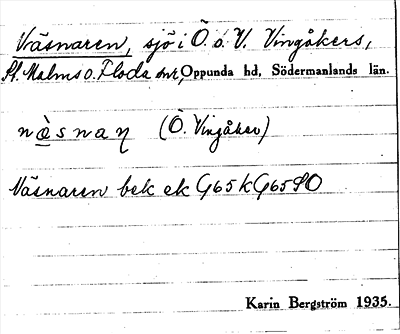 Näsnaren, sjö i Ö. o. V. Vingåkers,
St. Malms o. Floda snr, Oppunda hd, Södermanlands län.
næsnaɳ (Ö. Vingåker)
Näsnaren bek ek G65k G65SO
Karin Bergström 1935.